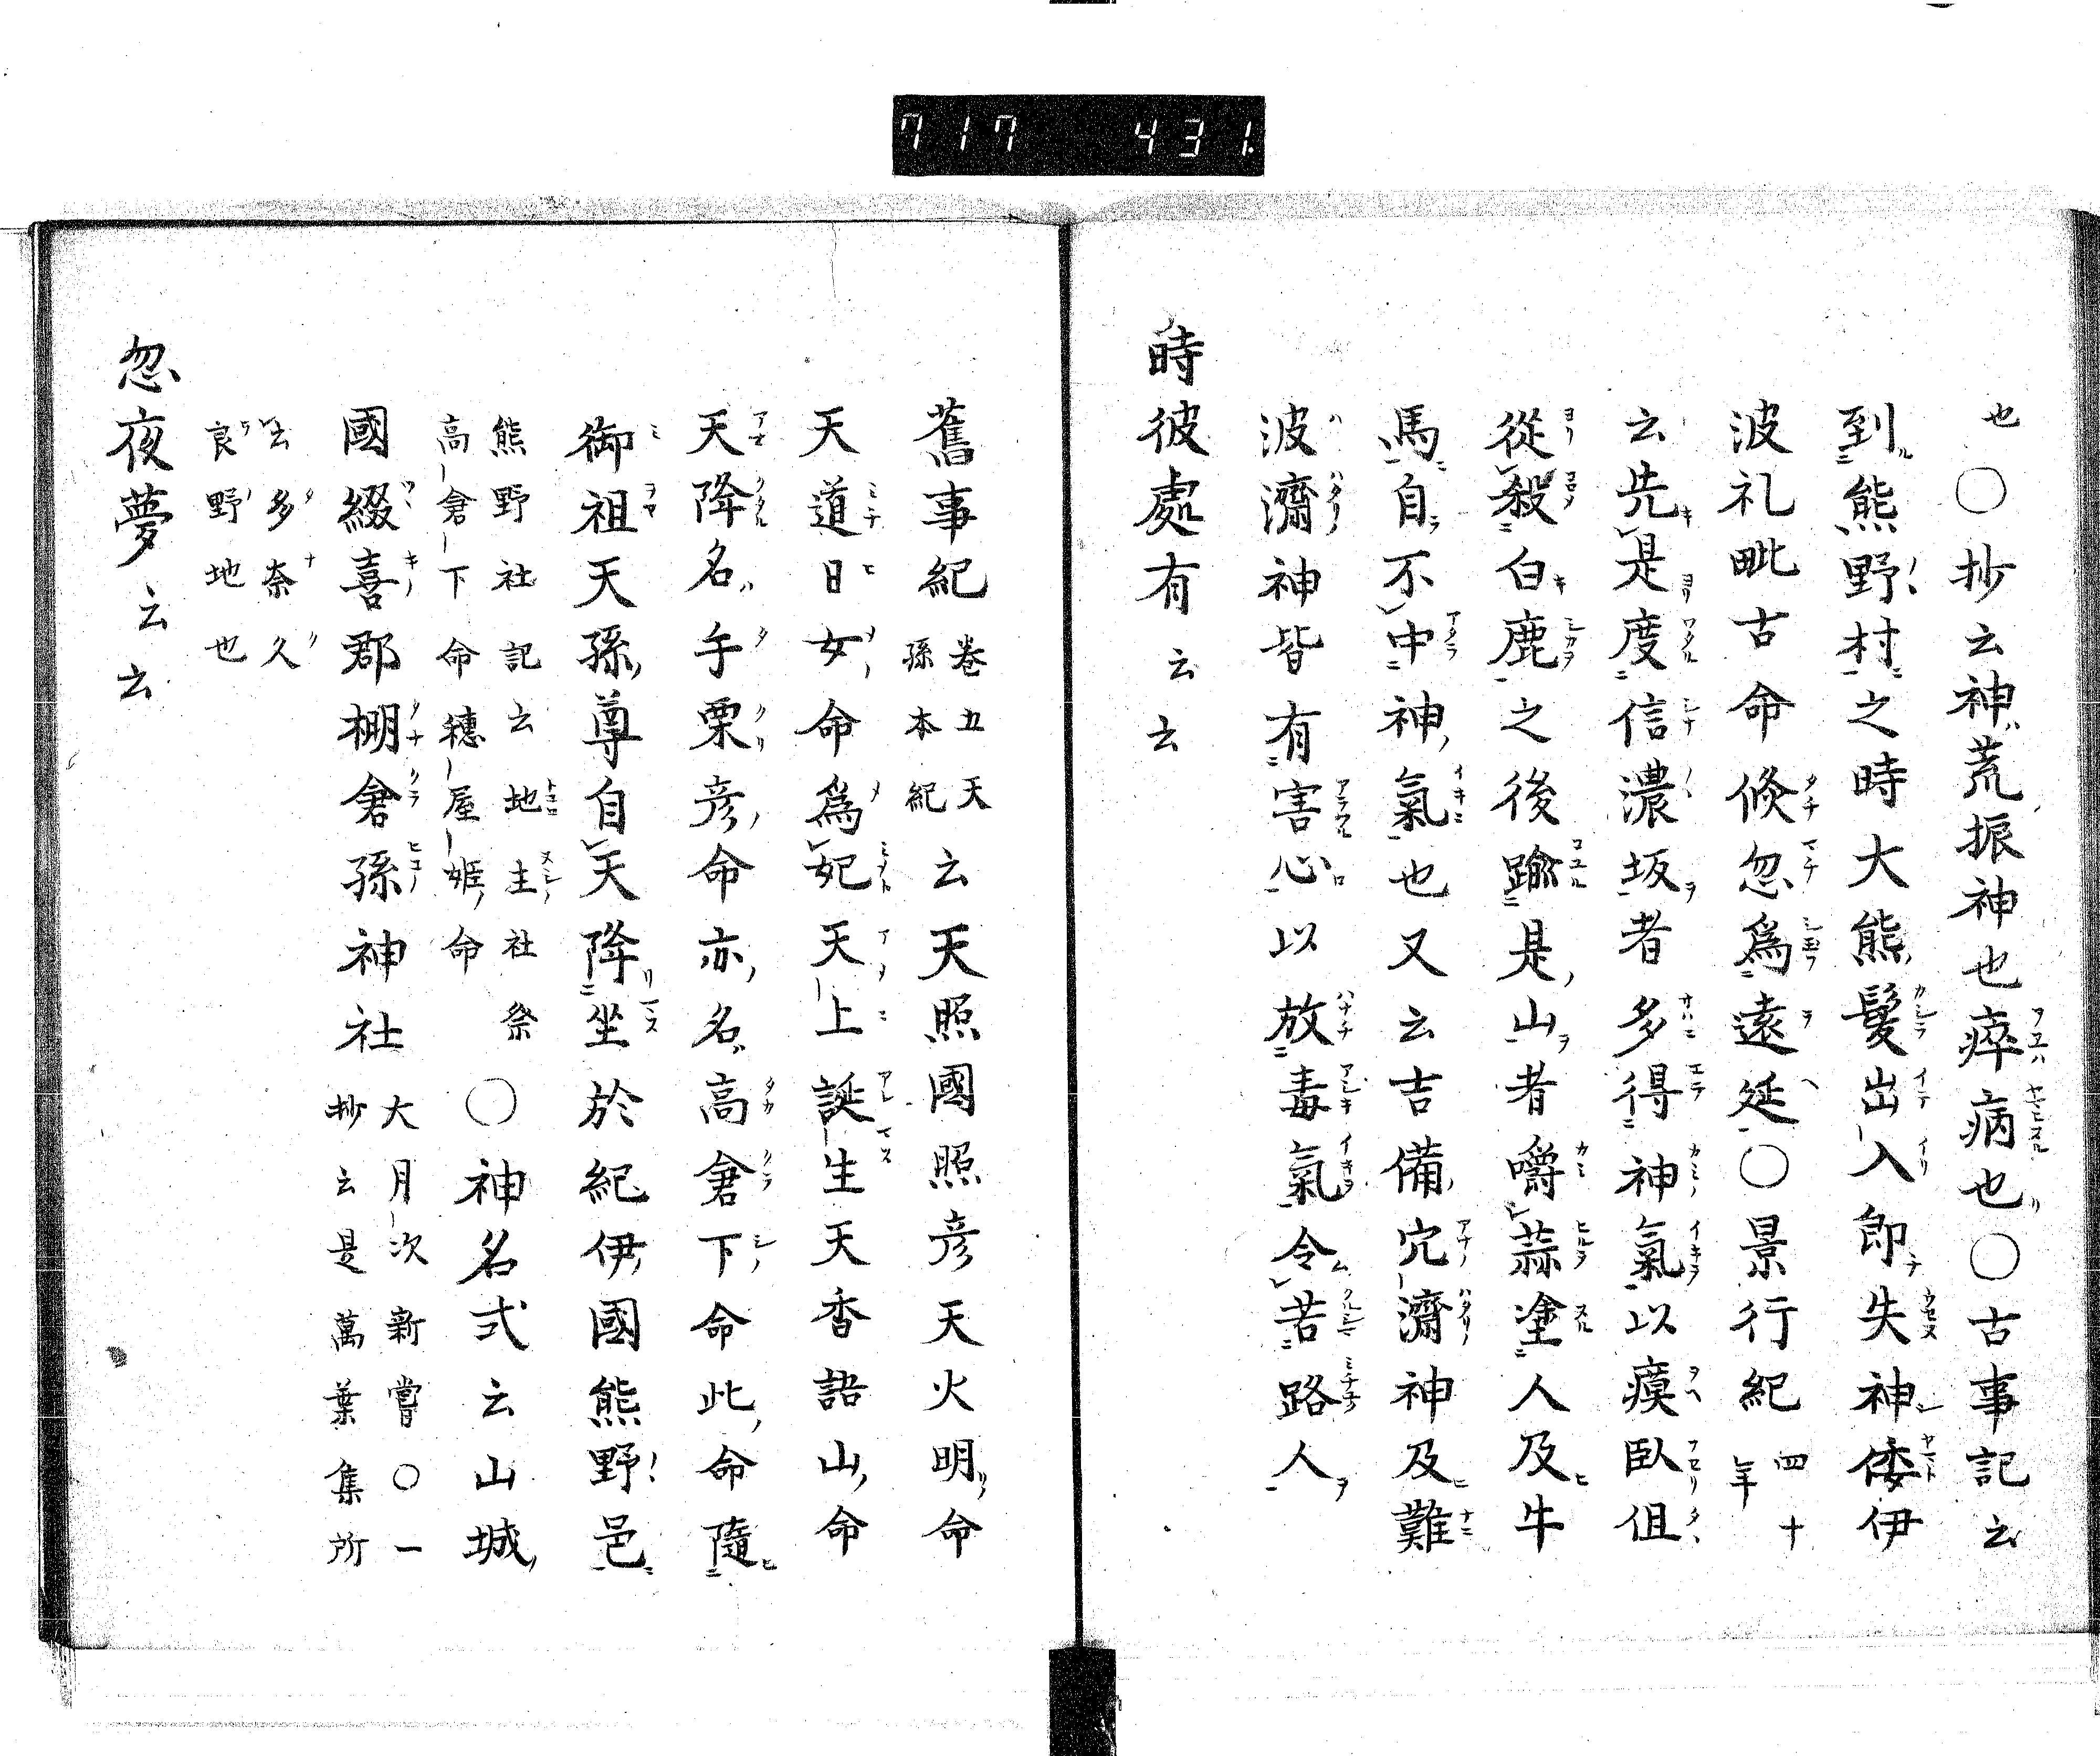 717 431.
也〇抄云神荒振神也瘁病也〇古事記云
到熊野村之時大熊髮出入即失神倭伊
波礼毗古命倏忽爲遠延〇景行紀四十年
云先是度信濃坂者多得神氣以瘼臥但
從殺白鹿之後踰是山者嚼蒜塗人及牛
馬自不中神氣也又云吉備穴濟神及難
波濟神皆有害心以放毒氣令苦路人
時彼處有云云
舊事紀卷五天孫本紀云天照國照彦天火明命
天道日女命爲妃天上誕生天香語山命
天降名手栗彦命亦名高倉下命此命隨
御祖天孫尊自天降坐於紀伊國熊野邑
熊野社記云地主社祭高倉下命穗屋姫命〇神名式云山城
國綴喜郡棚倉孫神社大月次新嘗〇一抄云是萬葉集所
云多奈久良野地也
忽夜夢云云